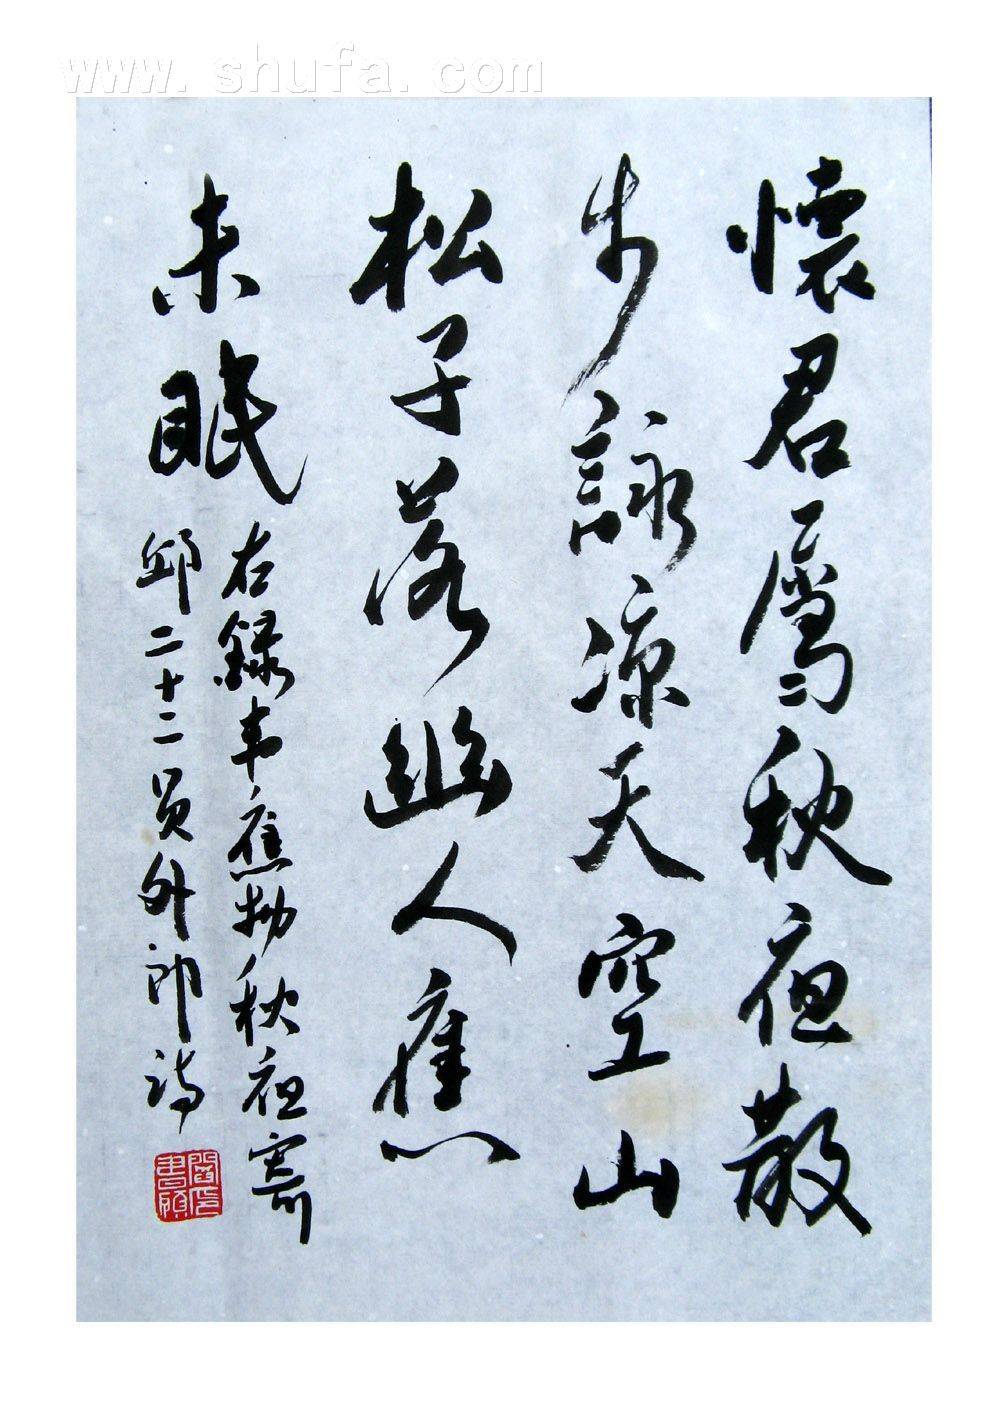 www.shufa.com
懷君屬秋夜散
步詠涼天空山
松子落幽人應
未眠
右錄韋應物秋夜寄
邱二十二員外郎詩